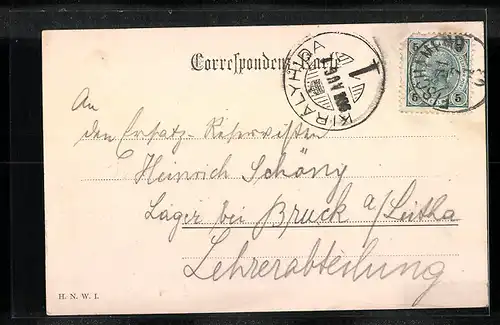 Correspondenz-Karte
KIRALYHIDA
5
An
den Ersatz-Reservisten
Heinrich Schöny
Lager bei Bruck a/Leitha
Lehrerabteilung
H. N. W. I.